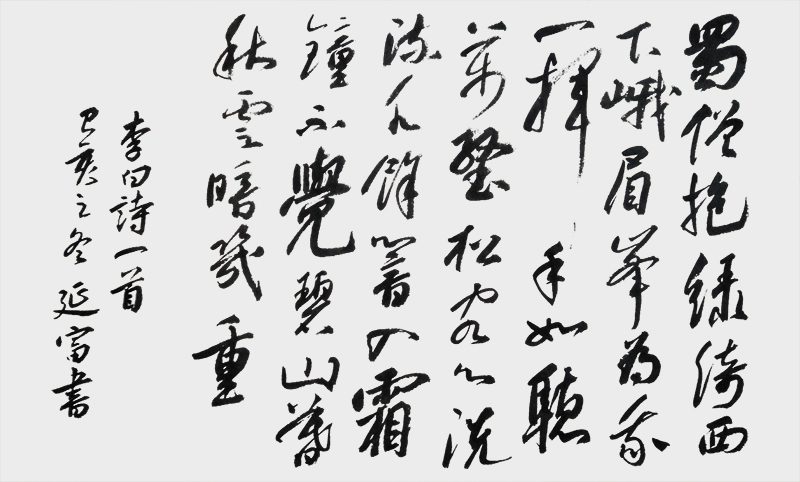 蜀僧抱綠綺西
下峨眉峯為我
一揮手如聽
萬壑松客心洗
流水餘響入霜
鐘不覺碧山暮
秋雲暗幾重
李白詩一首
己亥之冬 延富書